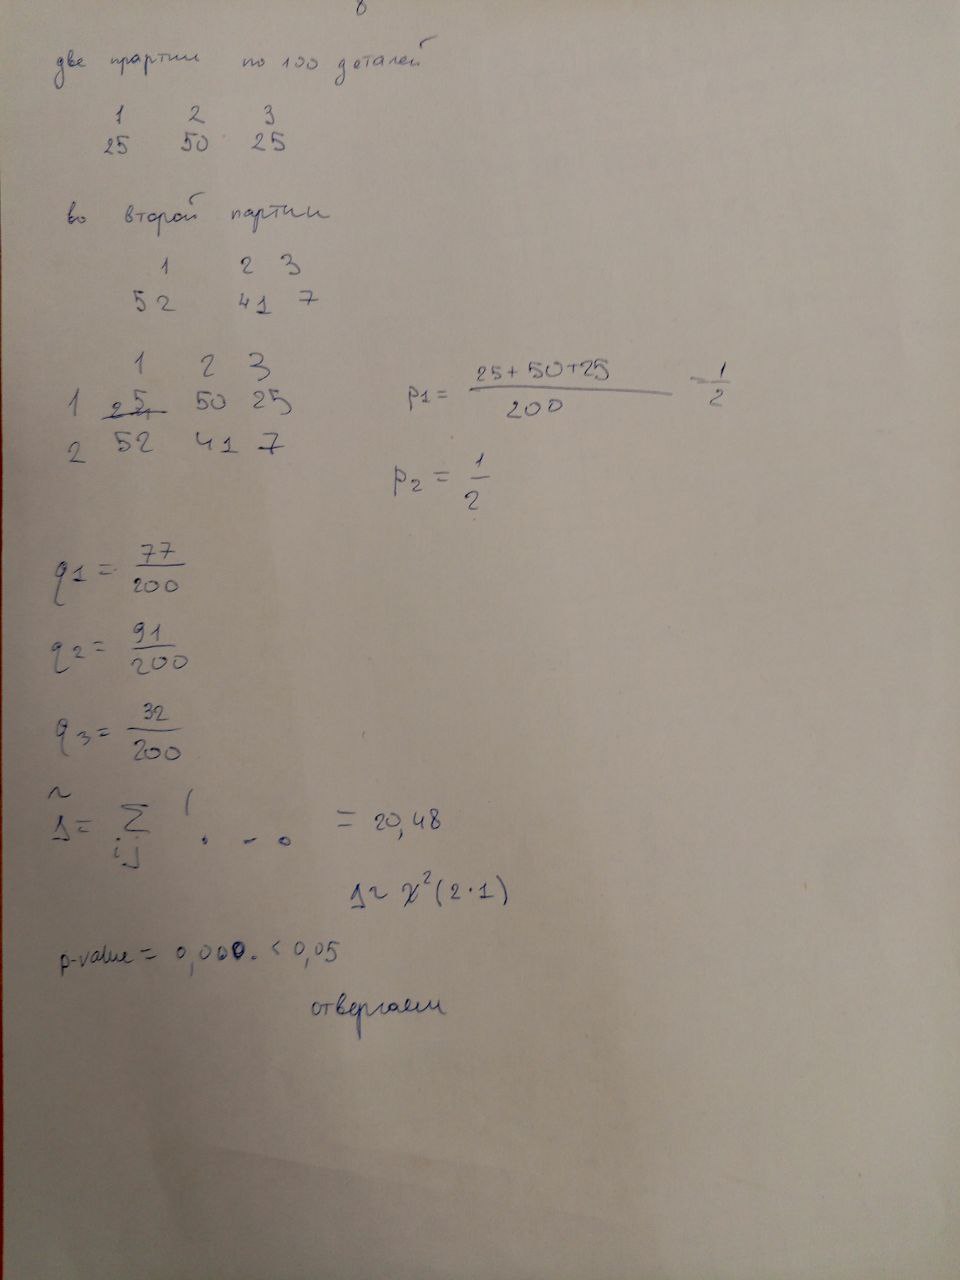 8
две прартии по 100 деталей
1 2 3
25 50 25
во второй партии
1 2 3
52 41 7
1 2 3
1 25 50 25
2 52 41 7
p1 = 25+50+25 / 200 = 1/2
p2 = 1/2
q1 = 77/200
q2 = 91/200
q3 = 32/200
Δ̃ = Σ ij ( . - . = 20,48
Δ ~ χ²(2·1)
p-value = 0,000. < 0,05
отвергаем